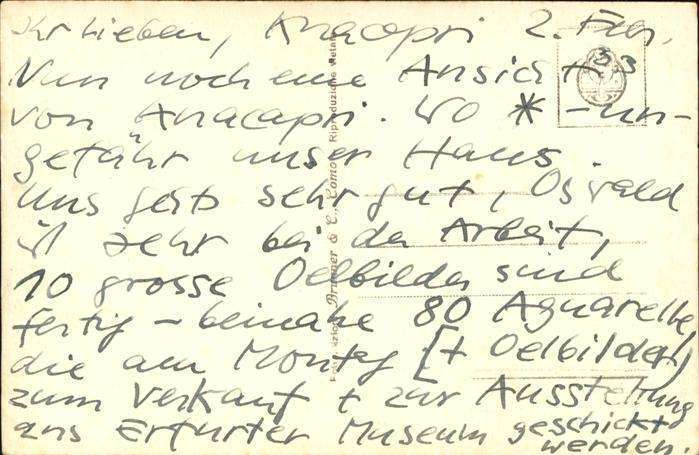 Ihr Lieben, Anacapri 2. Febr.
33
Nun noch eine Ansicht
von Anacapri. Wo * - un-
gefähr unser Haus.
Uns gehts sehr gut, Oswald
ist sehr bei der Arbeit,
10 grosse Oelbilder sind
fertig - beinahe 80 Aquarelle
die am Montag [+ Oelbilder]
zum Verkauf + zur Ausstellung
ans Erfurter Museum geschickt
werden.
Brunner & C., Como
Riproduzione vietata